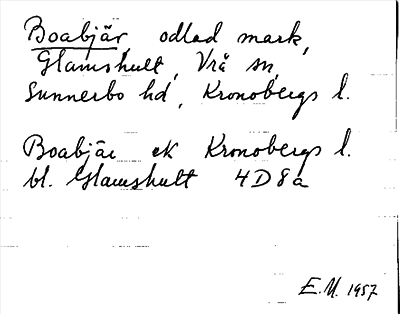 Boabjär, odlad mark,
Glamshult, Vrå sn,
Sunnerbo hd, Kronobergs l.
Boabjär ek Kronobergs l.
bl. Glamshult 4D8a
E.M. 1957